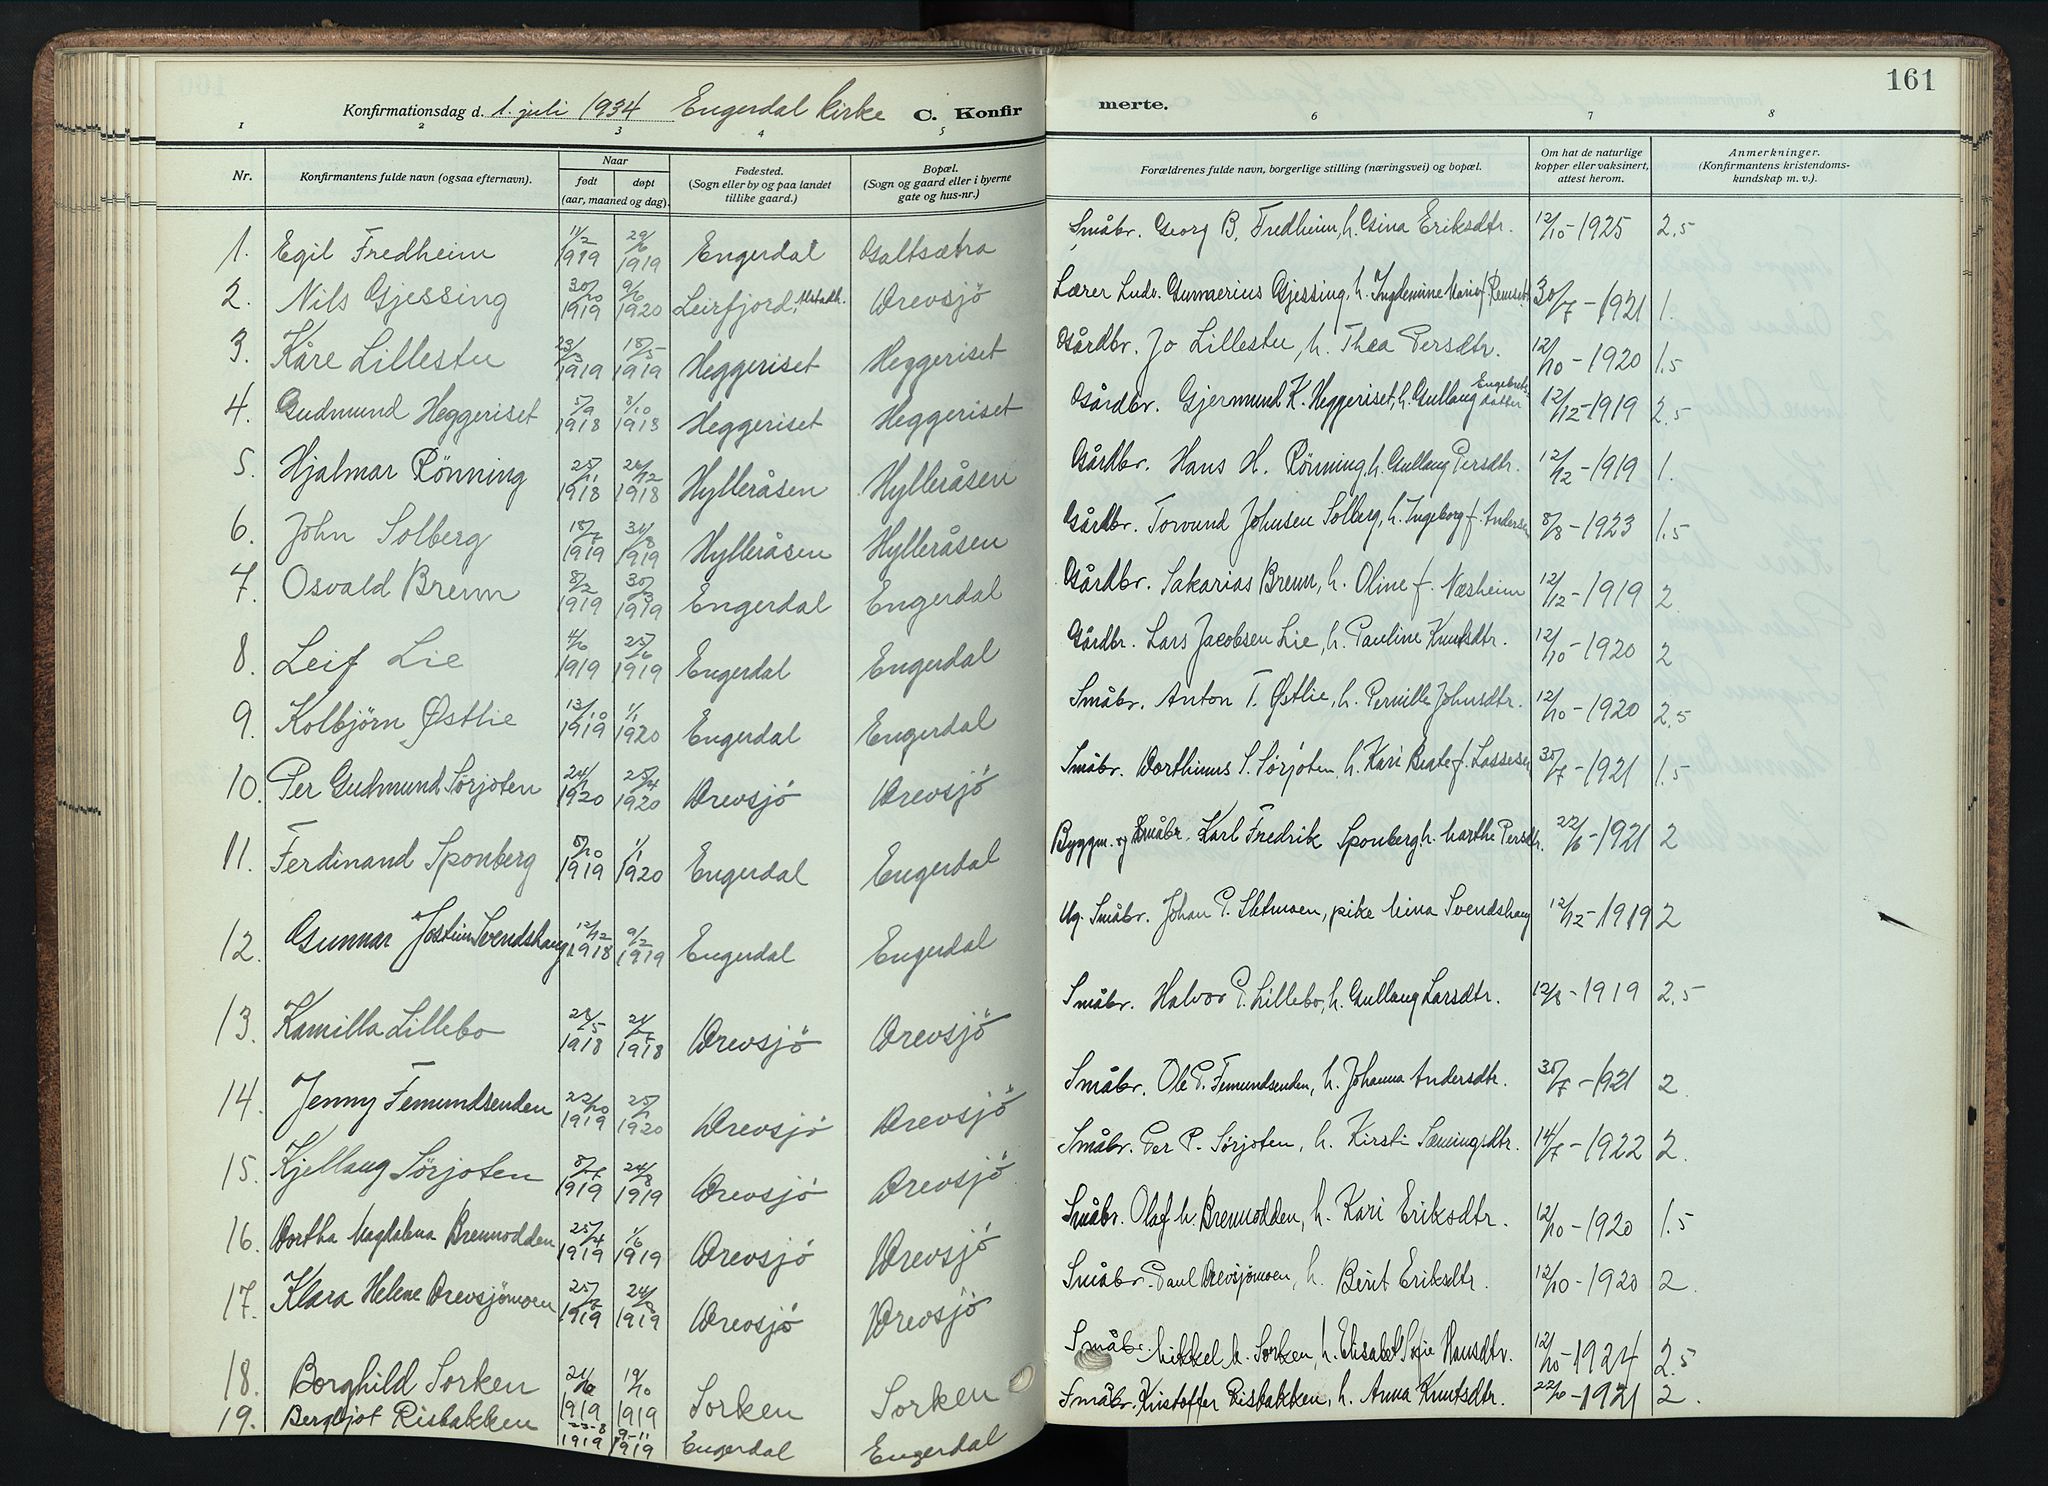 161
Konfirmationsdag d. 1. juli 1934 Engerdal kirke C. Konfirmerte.
1 2 3 4 5 6 7 8
Nr. Konfirmantens fulde navn (ogsaa efternavn). Naar født døpt (aar, maaned og dag). Fødested. (Sogn eller by og paa landet tillike gaard.) Bopæl. (Sogn og gaard eller i byerne gate og hus-nr.) Forældrenes fulde navn, borgerlige stilling (næringsvei) og bopæl. Om hat de naturlige kopper eller vaksinert, attest herom. Anmerkninger. (Konfirmantens kristendomskundskap m. v.).
1. Egil Fredheim 11/2 1919 29/6 1919 Engerdal Galtsætra Småbr. Georg B. Fredheim, h. Gina Eriksdtr. 12/10-1925 2.5
2. Nils Gjessing 30/10 1919 9/6 1920 Leirfjord, Drevsjö Lærer Ludv. Gunnerius Gjessing, h. 30/7-1921 1.
3. Kåre Lillestu 23/3 1919 18/5 1919 Heggeriset Heggeriset Gårdbr. Jo Lillestu, h. Thea Persdtr. 12/10-1920 1.5
4. Gudmund Heggeriset 5/9 1918 8/10 1918 Heggeriset Heggeriset Gårdbr. Gjermund K. Heggeriset, h. Gullaug Engebretsdatter 12/12-1919 2.5
5. Hjalmar Rönning 25/11 1918 26/12 1918 Hylleråsen Hylleråsen Gårdbr. Hans H. Rönning, h. Gullaug Persdtr. 12/12-1919 1.
6. John Solberg 18/7 1919 31/8 1919 Hylleråsen Hylleråsen Gårdbr. Torvund Johnsen Solberg, h. Ingeborg f. Andersen 8/8-1923 1.5
7. Osvald Brenn 8/2 1919 30/3 1919 Engerdal Engerdal Gårdbr. Sakarias Brenn, h. Oline f. Næsheim 12/12-1919 2
8. Leif Lie 4/6 1919 25/6 1919 Engerdal Engerdal Gårdbr. Lars Jacobsen Lie, h. Pauline Knutsdtr. 12/10-1920 2
9. Kolbjörn Østlie 13/10 1919 1/1 1920 Engerdal Engerdal Småbr. Anton T. Østlie, h. Pernille Johnsdtr. 12/10-1920 2.5
10. Per Gudmund Sørjoten 24/1 1920 25/4 1920 Drevsjö Drevsjö Småbr. Dorthinus S. Sørjoten, h. Kari Beate f. Lassesen 30/7-1921 1.5
11. Ferdinand Sponberg 5/10 1919 1/1 1920 Engerdal Engerdal Byggm. og Småbr. Karl Fredrik Sponberg h. Marthe Persdtr. 22/6-1921 2
12. Gunnar Jostein Svendshaug 12/12 1918 9/2 1919 Engerdal Engerdal Ug. Småbr. Johan P. Sletmoen, pike Mina Svendshaug 12/12-1919 2
13. Kamilla Lillebo 28/5 1918 21/7 1918 Drevsjö Drevsjö Småbr. Halvor P. Lillebo, h. Gullaug Larsdtr. 12/8-1919 2.5
14. Jenny Femundsenden 22/10 1919 25/1 1920 Drevsjö Drevsjö Småbr. Ole P. Femundsenden, h. Johanna Andersdtr. 30/7-1921 2
15. Kjellaug Sørjoten 8/7 1919 24/8 1919 Drevsjö Drevsjö Småbr. Per P. Sørjoten, h. Kirsti Sæmingsdtr. 14/7-1922 2.
16. Dortha Magdalena Brennodden 25/4 1919 1/6 1919 Drevsjö Drevsjö Småbr. Olaf M. Brennodden, h. Kari Eriksdtr. 12/10-1920 1.5
17. Klara Helene Drevsjömoen 25/7 1919 24/8 1919 Drevsjö Drevsjö Småbr. Paul Drevsjömoen, h. Berit Eriksdtr. 12/10-1920 2.
18. Borghild Sorken 21/6 1919 19/10 1919 Sorken Sorken Småbr. Mikkel M. Sorken, h. Elisabet Sofie Hansdtr. 12/10-1924 2.5
19. Bergljot Risbakken 23-8 1919 9-11 1919 Engerdal Engerdal Småbr. Kristoffer Risbakken, h. Anna Knutsdtr. 22/6-1921 2.